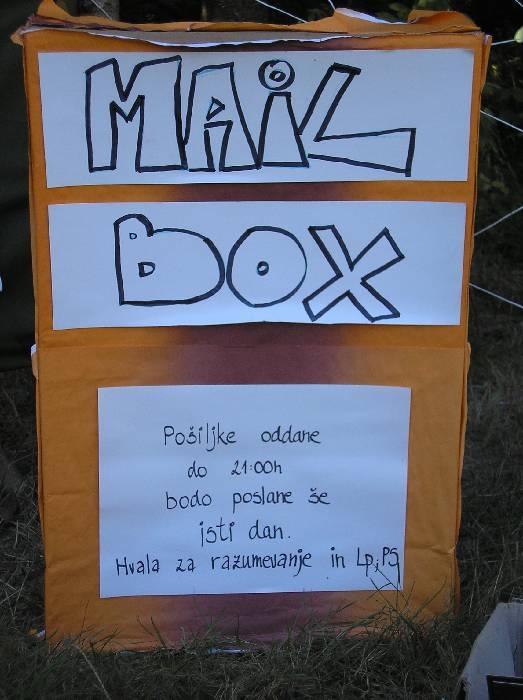 MAiL
BOX
Pošiljke oddane
do 21:00h
bodo poslane še
isti dan.
Hvala za razumevanje in Lp, PŠ